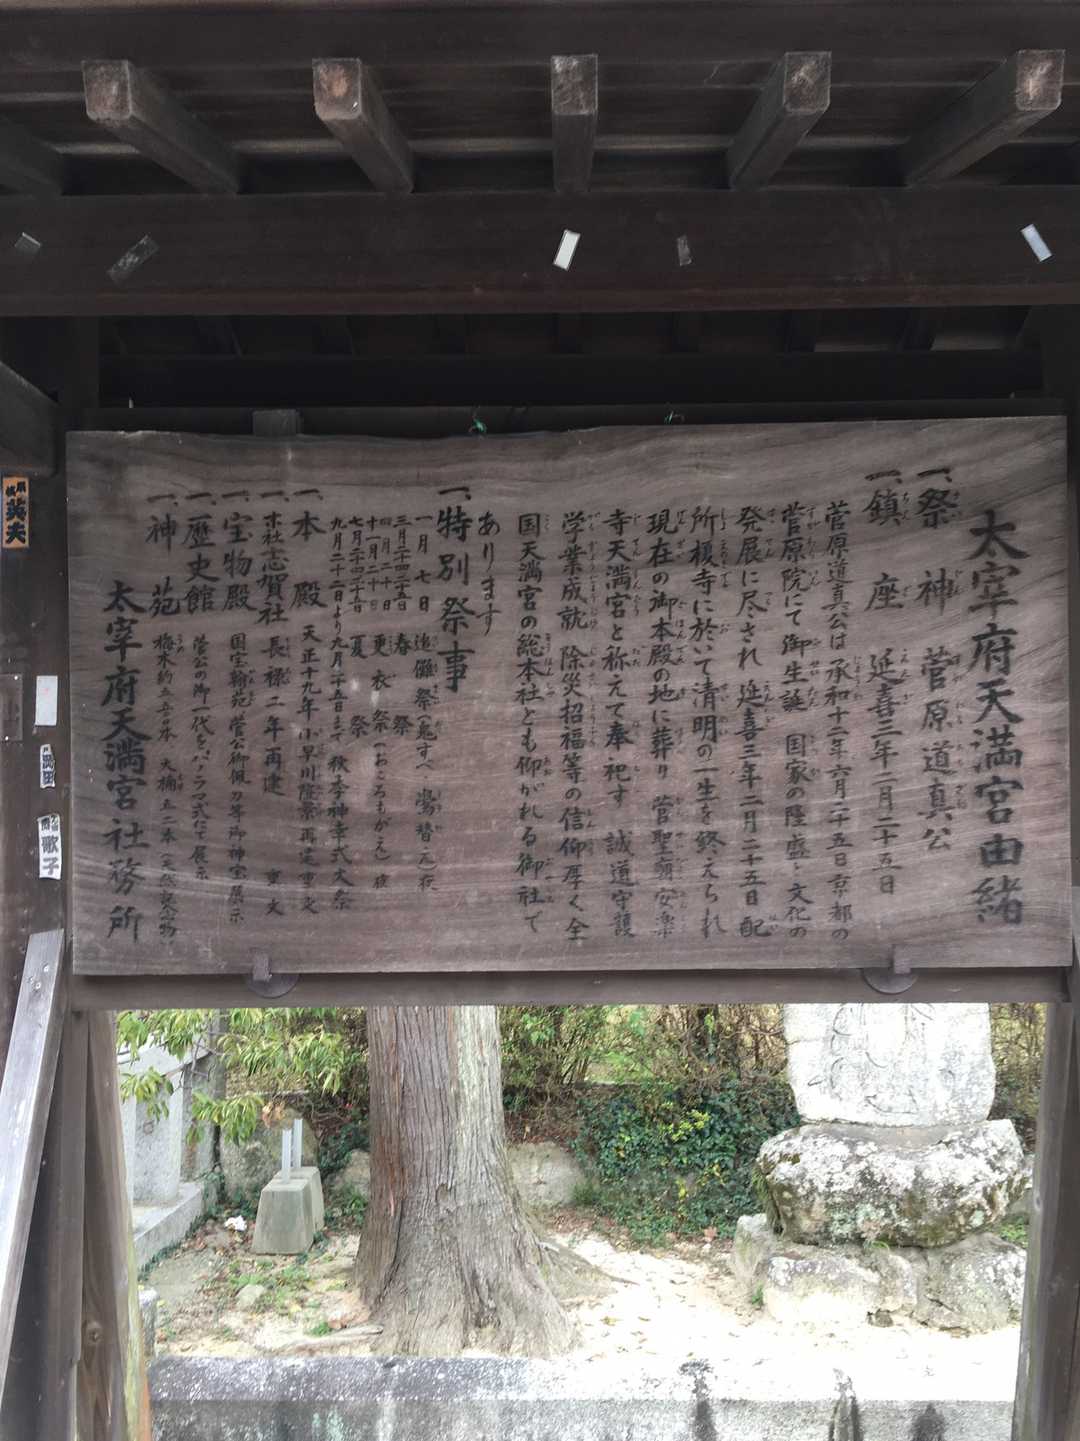 太宰府天満宮由緒
一、祭 神 菅原道真公
一、鎮 座 延喜三年二月二十五日
菅原道真公は承和十二年六月二十五日京都の
菅原院にて御生誕 国家の隆盛、文化の
発展に尽され 延喜三年二月二十五日 配
所榎寺に於いて清明の一生を終えられ
現在の御本殿の地に葬り 菅聖廟安楽
寺天満宮と称えて奉祀す 誠道守護
学業成就 除災招福等の信仰厚く全
国天満宮の総本社とも仰がれる御社で
あります
一、特別祭事
一月 七日 追儺祭(鬼すべ 鷽替え)夜
三月二十四、二十五日 春 祭
四月二十日 十一月二十日 更 衣 祭(おころもがえ)夜
七月二十四、二十五日 夏 祭
九月二十二日より九月二十五日まで 秋季神幸式大祭
一、本 殿 天正十九年 小早川隆景再建 重文
一、末社志賀社 長禄二年再建 重文
一、宝物殿 国宝翰苑 菅公御佩刀等御神宝展示
一、歴史館 菅公の御一代をパノラマ式にて展示
一、神 苑 梅木約五、五〇〇本、大樟五二本(天然記念物)
太宰府天満宮社務所
英夫
武田
歌子